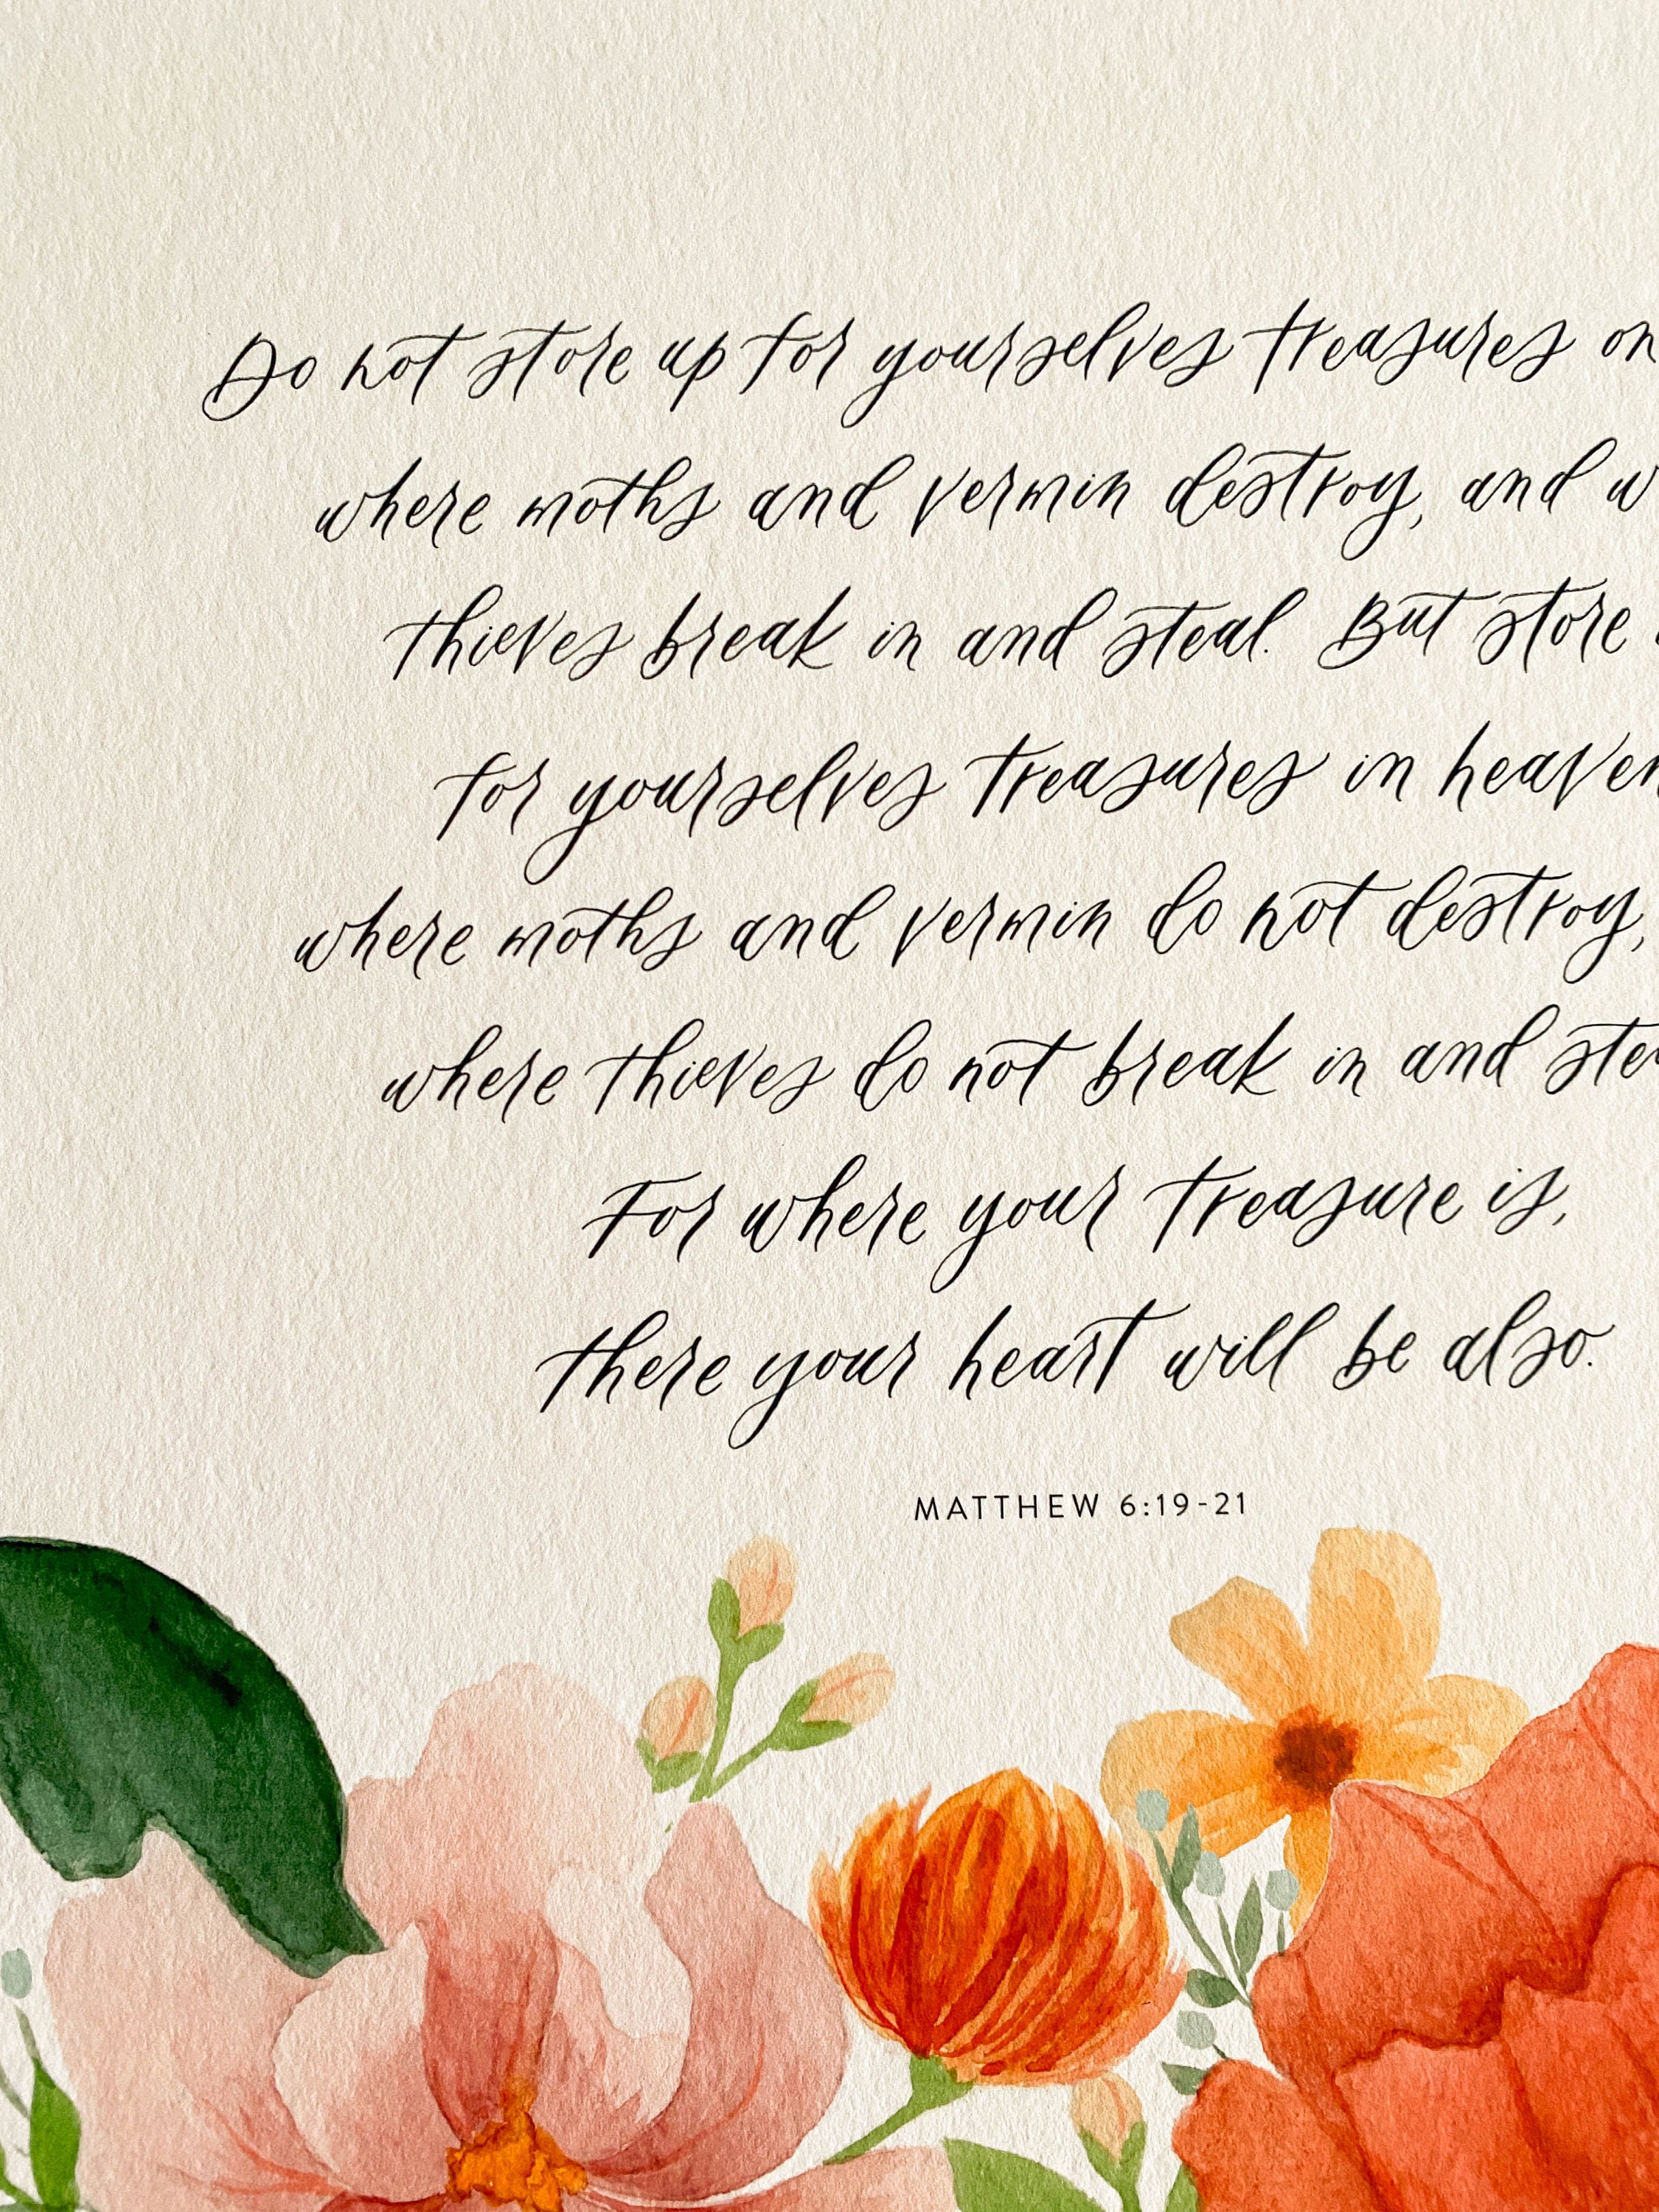 Do not store up for yourselves treasures on
where moths and vermin destroy, and w
thieves break in and steal. But store
for yourselves treasures in heaven
where moths and vermin do not destroy,
where thieves do not break in and ste
For where your treasure is,
there your heart will be also.
MATTHEW 6:19-21